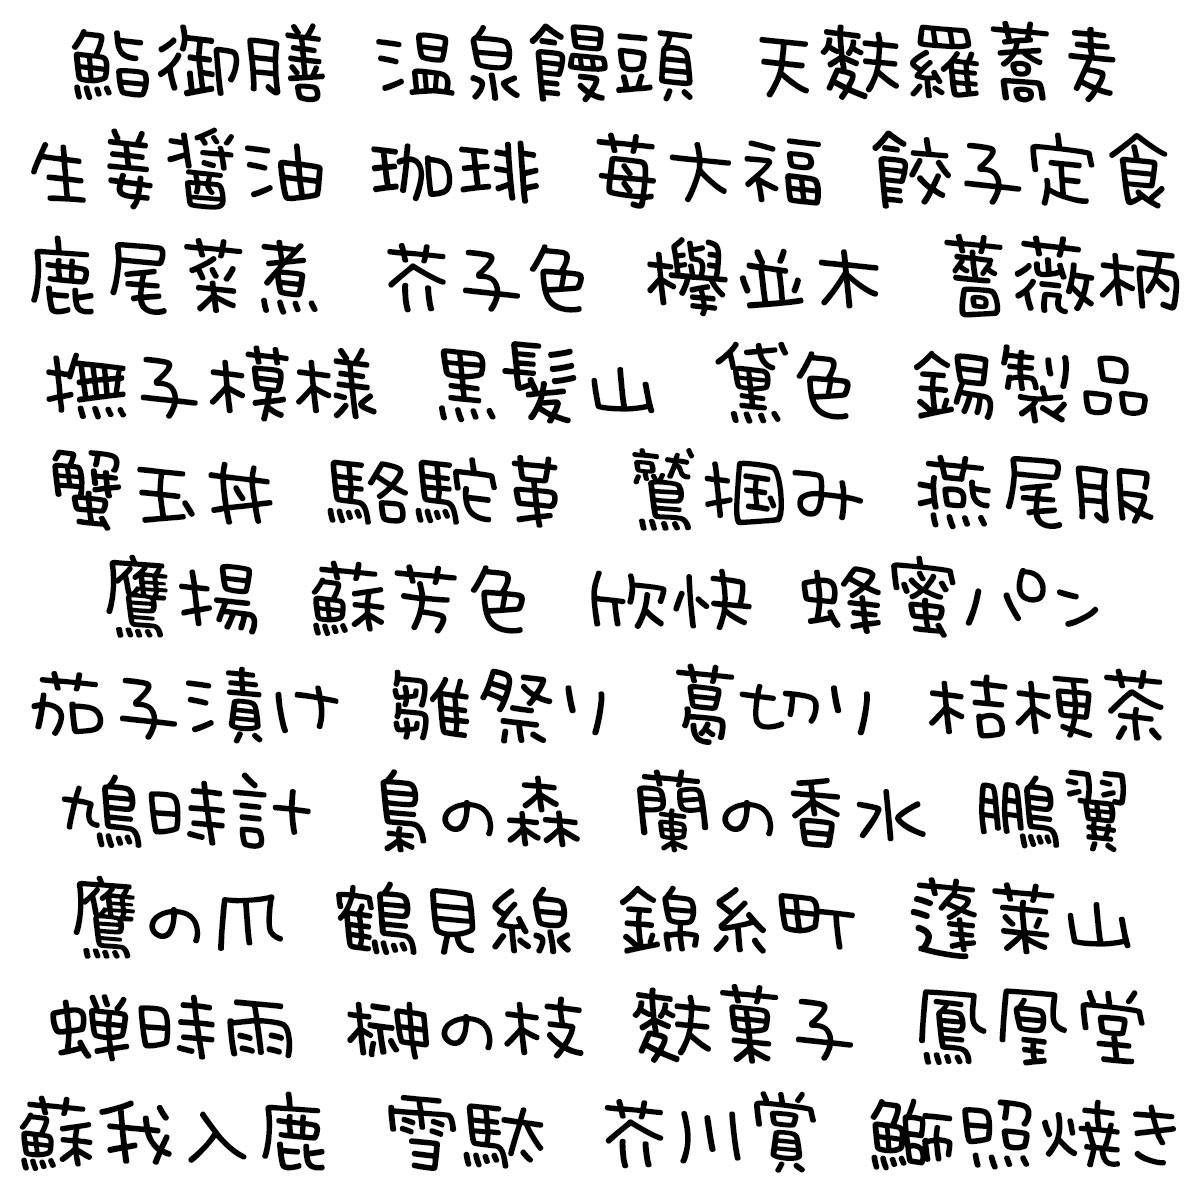 鮨御膳 温泉饅頭 天麩羅蕎麦
生姜醤油 珈琲 苺大福 餃子定食
鹿尾菜煮 芥子色 欅並木 薔薇柄
撫子模様 黒髪山 黛色 錫製品
蟹玉丼 駱駝革 鷲掴み 燕尾服
鷹揚 蘇芳色 欣快 蜂蜜パン
茄子漬け 雛祭り 葛切り 桔梗茶
鳩時計 梟の森 蘭の香水 鵬翼
鷹の爪 鶴見線 錦糸町 蓬莱山
蝉時雨 榊の枝 麩菓子 鳳凰堂
蘇我入鹿 雪駄 芥川賞 鰤照焼き